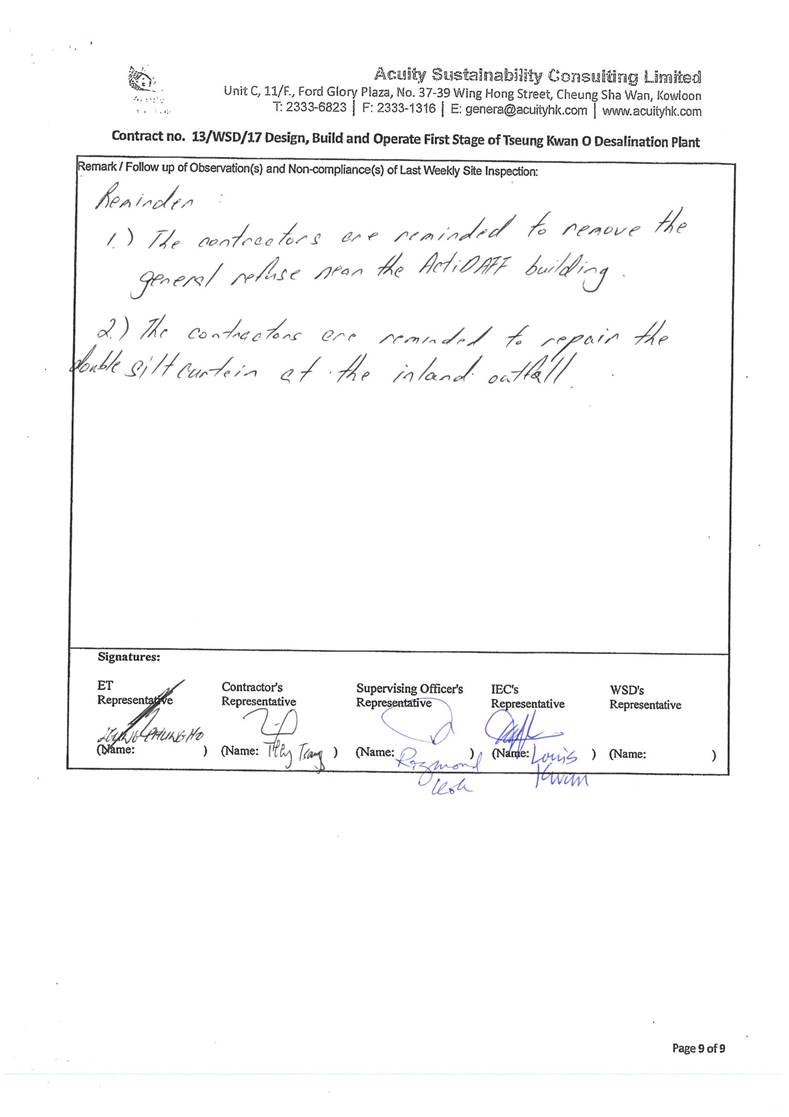 Acuity Sustainability Consulting Limited
Unit C, 11/F., Ford Glory Plaza, No. 37-39 Wing Hong Street, Cheung Sha Wan, Kowloon
T: 2333-6823 | F: 2333-1316 | E: genera@acuityhk.com | www.acuityhk.com
Contract no. 13/WSD/17 Design, Build and Operate First Stage of Tseung Kwan O Desalination Plant
Remark / Follow up of Observation(s) and Non-compliance(s) of Last Weekly Site Inspection:
Reminder :
1.) The contractors are reminded to remove the
general refuse near the ActiDAFF building.
2.) The contractors are reminded to repair the
double silt curtain at the inland outfall.
Signatures:
ET Representative
Contractor's Representative
Supervising Officer's Representative
IEC's Representative
WSD's Representative
(Name: CHUNG HO )
(Name: Tsang )
(Name: Raymond )
(Name: Louis Kwan )
(Name: )
Page 9 of 9